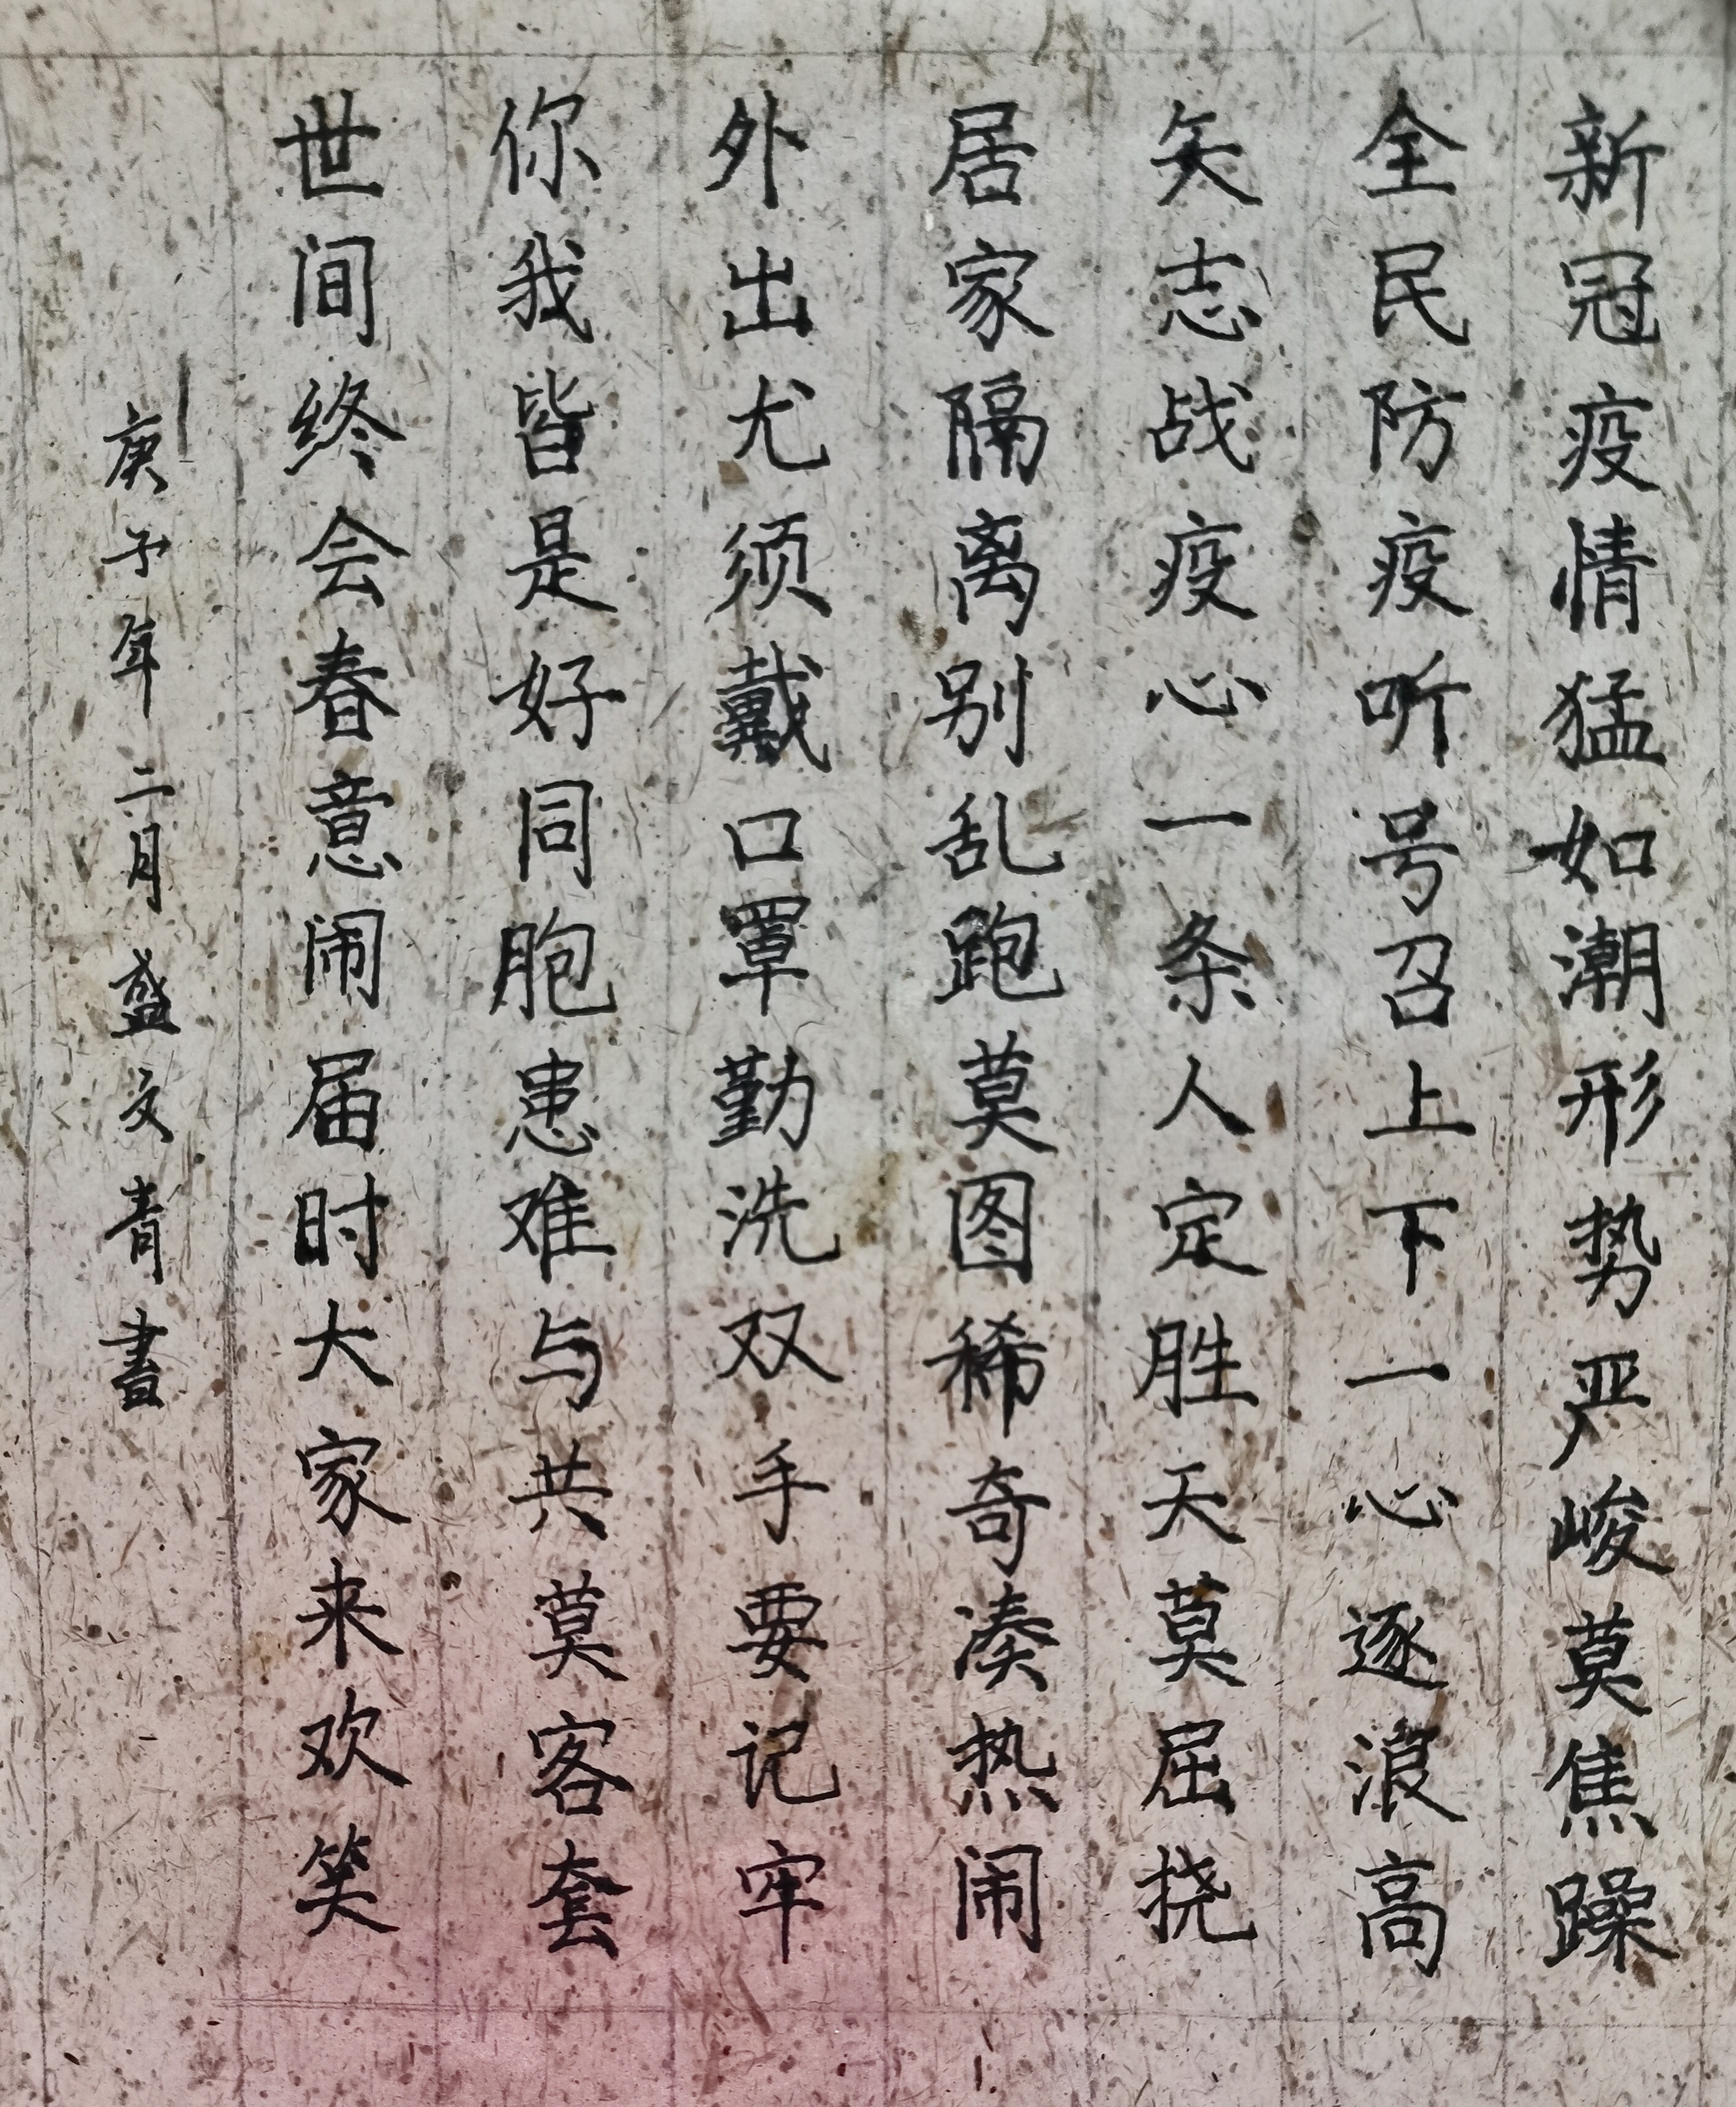 新冠疫情猛如潮形势严峻莫焦躁
全民防疫听号召上下一心逐浪高
矢志战疫心一条人定胜天莫屈挠
居家隔离别乱跑莫图稀奇凑热闹
外出尤须戴口罩勤洗双手要记牢
你我皆是好同胞患难与共莫客套
世间终会春意闹届时大家来欢笑
庚子年二月盛文青書